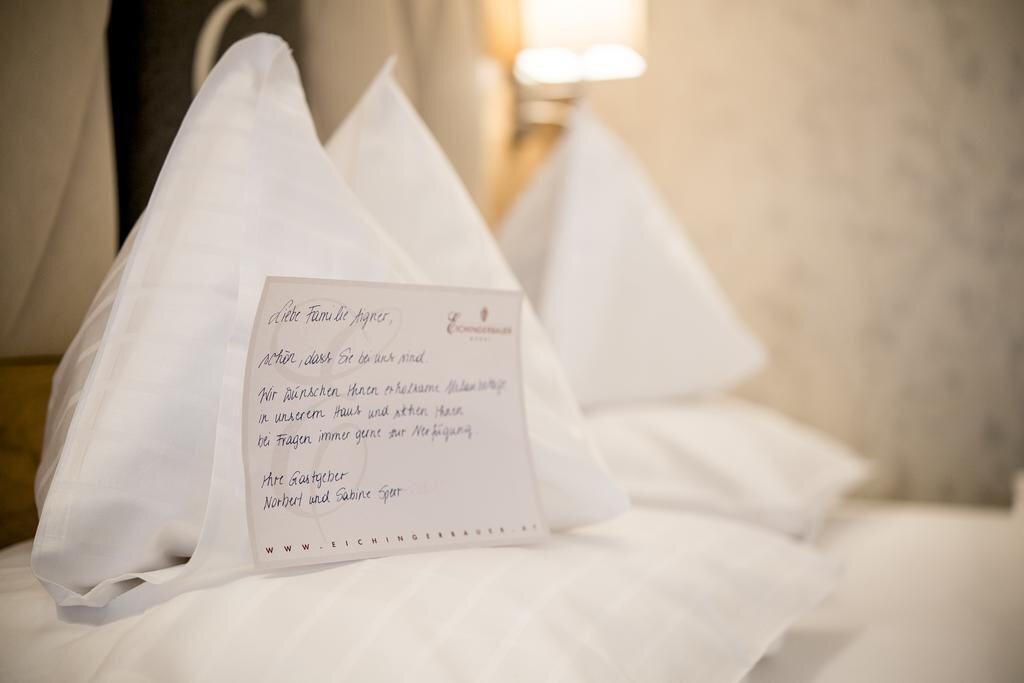 Liebe Familie Aigner,
EICHINGERBAUER
HOTEL
schön, dass Sie bei uns sind.
Wir wünschen Ihnen erholsame Urlaubstage
in unserem Haus und stehen Ihnen
bei Fragen immer gerne zur Verfügung.
Ihre Gastgeber
Norbert und Sabine Sperr
WWW.EICHINGERBAUER.AT